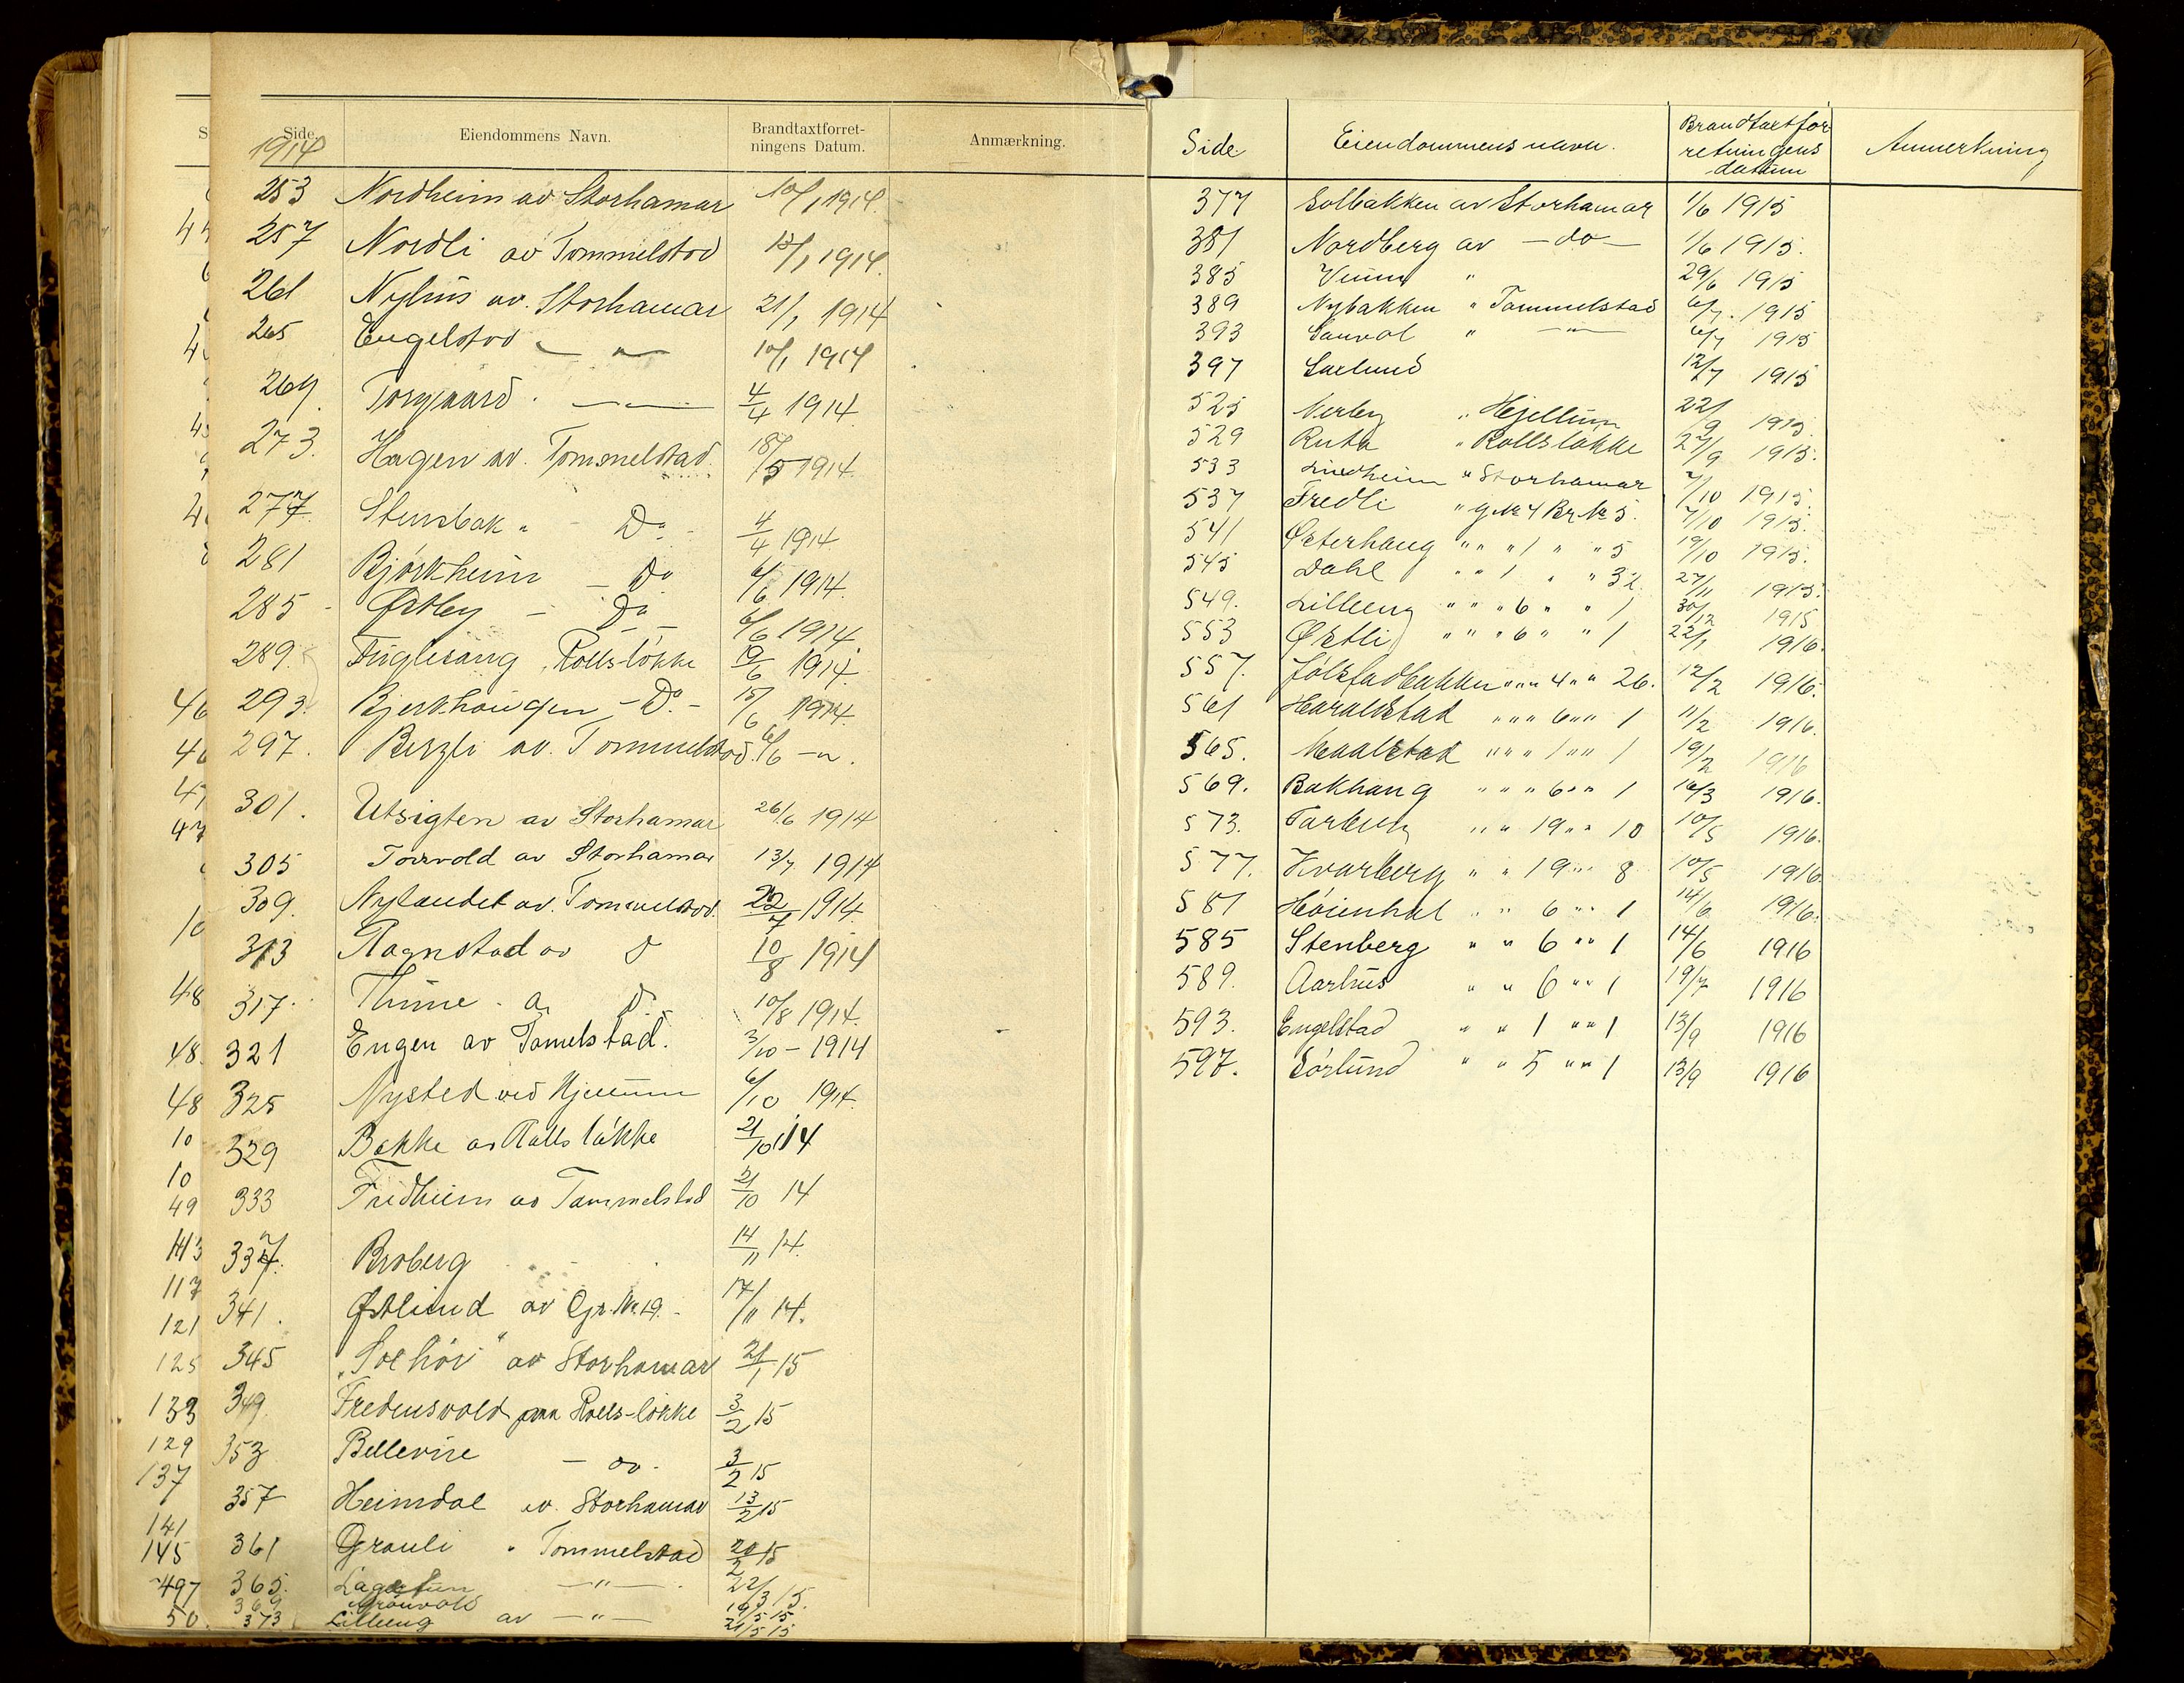 Side. Eiendommens Navn. Brandtaxtforret-ningens Datum. Anmærkning.
1914
253 Nordheim av Storhamar 10/1 1914.
257 Nordli av Tommelstad 13/1 1914.
261 Nyhus av. Storhamar 21/1 1914
265 Engelstad — " — 10/1 1914
269 Torgaard. — " — 4/4 1914
273. Hagen av. Tommelstad. 18/5 1914.
277. Stensbak " Do - 4/4 1914
281 Bjørkheim - Do 6/6 1914.
285 - Østby - Do 6/6 1914.
289. Fuglesang, Rollsløkke 19/6 1914.
293. Bjerkhaugen - Do - 15/6 1914.
297. Bergli av. Tommelstad. 6/6 - " .
301. Utsigten av Storhamar 26/6 1914
305 Torvold av Storhamar 13/7 1914
309. Nylandet av. Tommelstad. 22/7 1914
313 Ragnstad av D 10/8 1914
317. Thune - a D. 10/8 1914.
321 Engen av Tomelstad. 3/10 - 1914
325 Nysted ved Hjellum 6/10 1914.
329 Bakke av Rolls løkke 21/10 14
333 Fredheim av Tommelstad 21/10 14
337. Broberg 14/11 14.
341. Østlund av Gr. No. 19. 17/11 14.
345 "Solhøi" av Storhamar 21/1 15
349. Fredensvold paa Rolls-løkke 3/2 15
353 Bellevue - av - 3/2 15
357 Heimdal av. Storhamar 13/2 15
361 Granli " Tommelstad 20/2 15
365. — " — . 22/3 15.
369 Grønvold 19/5 15
373 Lilleeng av — " — 21/5 15
Side. Eiendommens navn. Brandtaxtforretningens datum Anmerkning
377 Solbakken av Storhamar 1/6 1915
381 Nordberg av - do - 1/6 1915.
385 " 29/6 1915
389 Nybakken " Tommelstad 6/7. 1915
393 " — " — 6/7 1915
397 12/7 1915
525 Nerby " Hjellum 22/9 1915.
529 Ruta " Rollsløkke 27/9 1915.
533 Lindheim " Storhamar 7/10 1915.
537 Fredli " g No 4 Br No 5. 7/10 1915.
541 Østerhaug " " " 1 " " 5 19/10 1915.
545 Dahl " " 1 " " 32 27/11 1915.
549. Lilleeng " " " 6 " " 1 30/12 1915
553 Østli " " " 6 " " 1 22/1 1916.
557. " " " 4 " " 26. 12/2 1916.
561 Haraldstad " " " 6 " " 1 11/2 1916.
565. " " " 1 " " 1 19/2 1916
569. Bakhaug " " " 6 " " 1 16/3 1916.
573. " " 19 " " 10 10/5 1916.
577. Kvarberg " " 19 " " 8 10/5 1916.
581 " " 6 " " 1 14/6 1916.
585 Stenberg " " 6 " " 1 14/6 1916
589. Aarhus " " 6 " " 1 19/7 1916
593. Engelstad " " 1 " " 1 13/9 1916
597. Sørlund " " 5 " " 1 13/9 1916